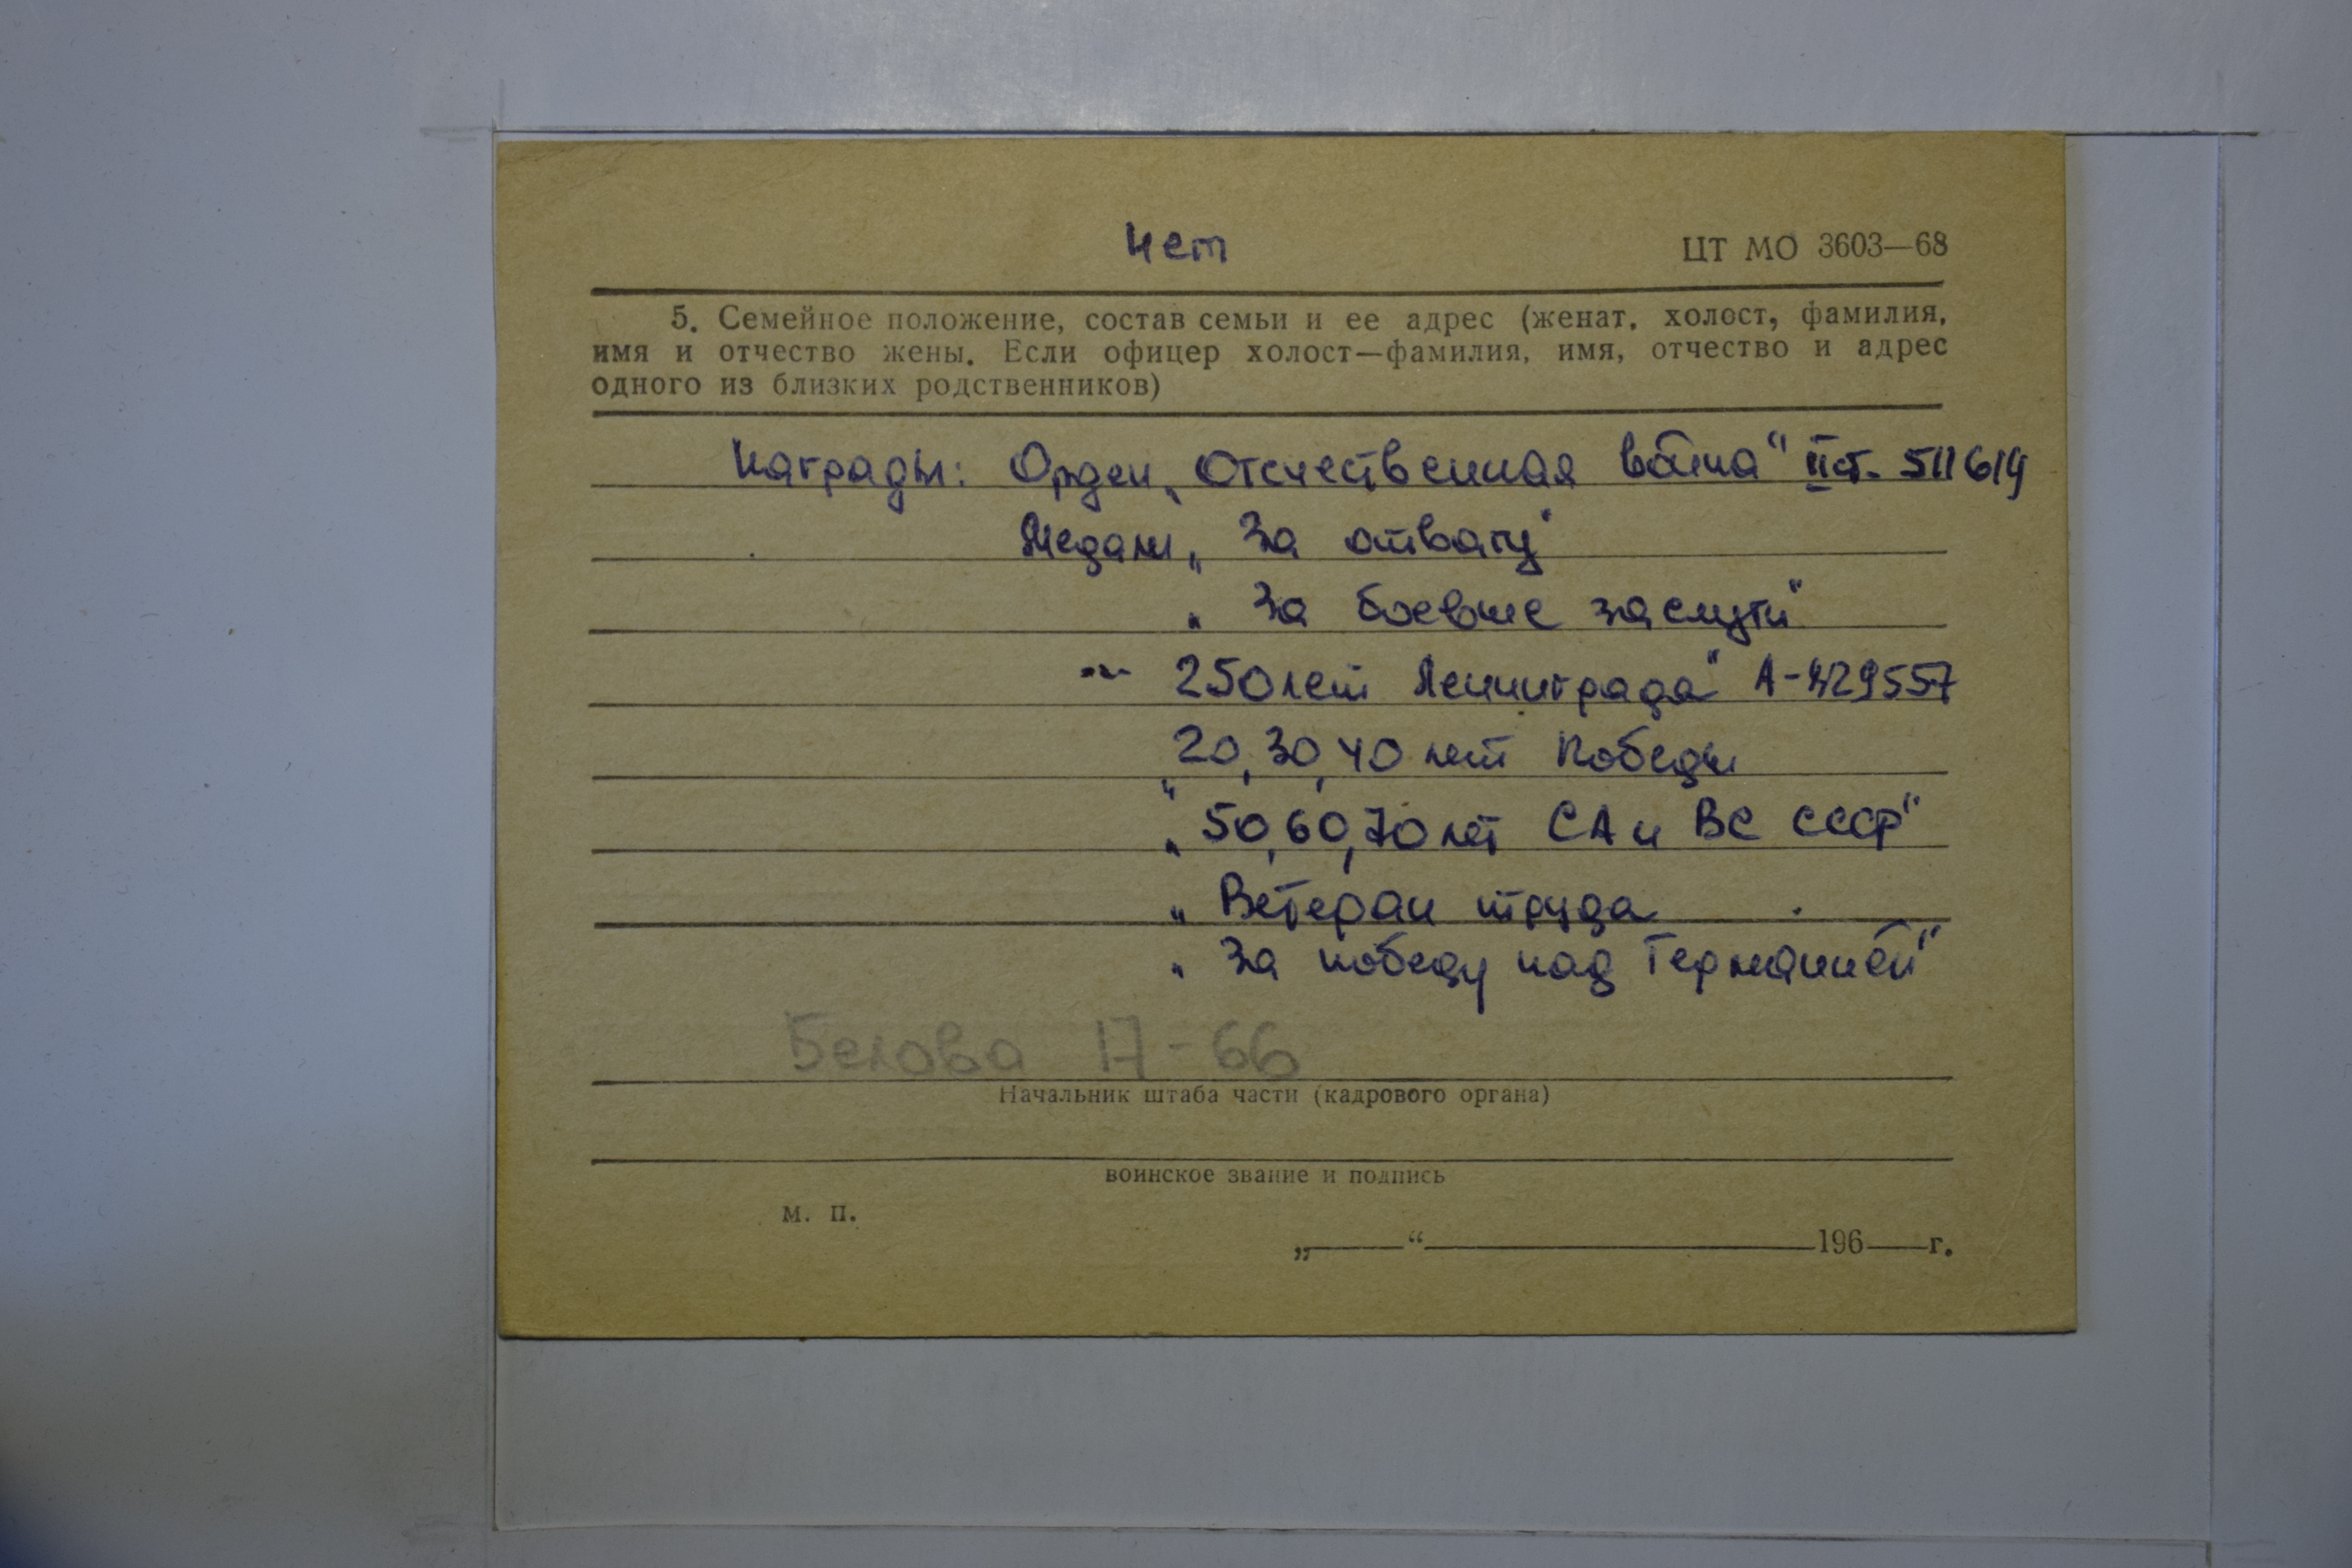 нет
ЦТ МО 3603—68
5. Семейное положение, состав семьи и ее адрес (женат, холост, фамилия,
имя и отчество жены. Если офицер холост—фамилия, имя, отчество и адрес
одного из близких родственников)
Награды: Орден „Отечественная война“ II ст. 511619
Медали „За отвагу“
„За боевые заслуги“
–"– 250 лет Ленинграда“ А-429557
„20, 30, 40 лет Победы
„50, 60, 70 лет СА и ВС СССР“
„Ветеран труда
„За победу над Германией“
Белова 17-66
Начальник штаба части (кадрового органа)
воинское звание и подпись
м. п.
„ “ 196 г.